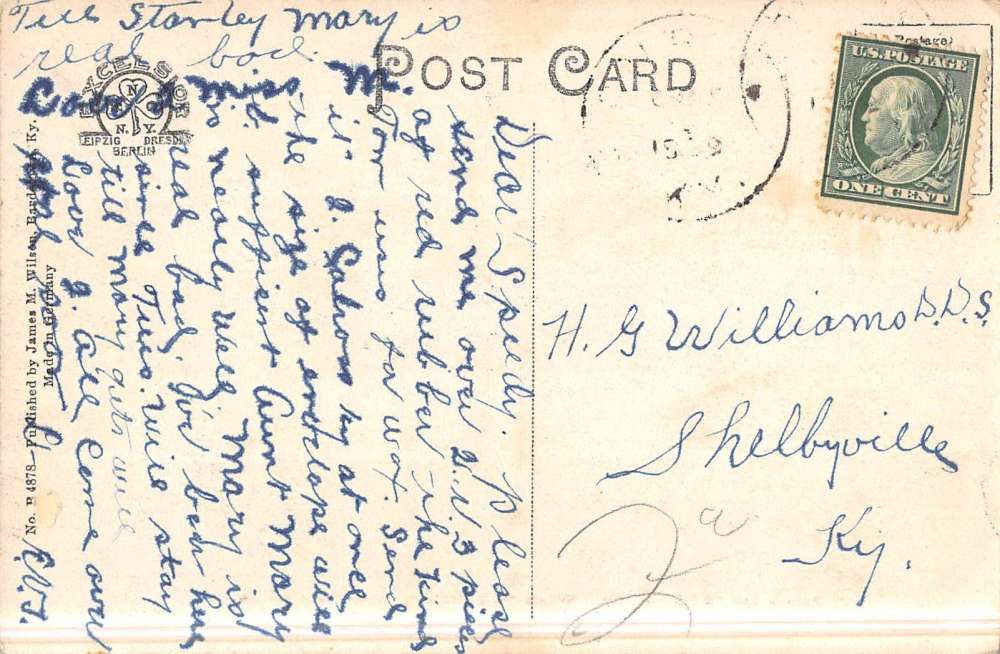 Tell Stanley Mary is
real bad.
POST CARD
EXCELSIOR
N.Y.
LEIPZIG DRESDEN
BERLIN
Postage
U.S. POSTAGE
ONE CENT
1909
KY.
Dear Speedy. Please
send me over pieces
of red rubber the kind
you use for wax. Send
it at once
the size of envelope will
be sufficent Aunt Mary
is nearly well Mary is
real bad. I've been here
since Tues. Will stay
till Mary gets well
Love to all Come over
Love to Miss M.
H. G Williams D.D.S.
Shelbyville
Ky.
No. B 4878—Published by James M. Wilson, Bardstown, Ky.
Made in Germany